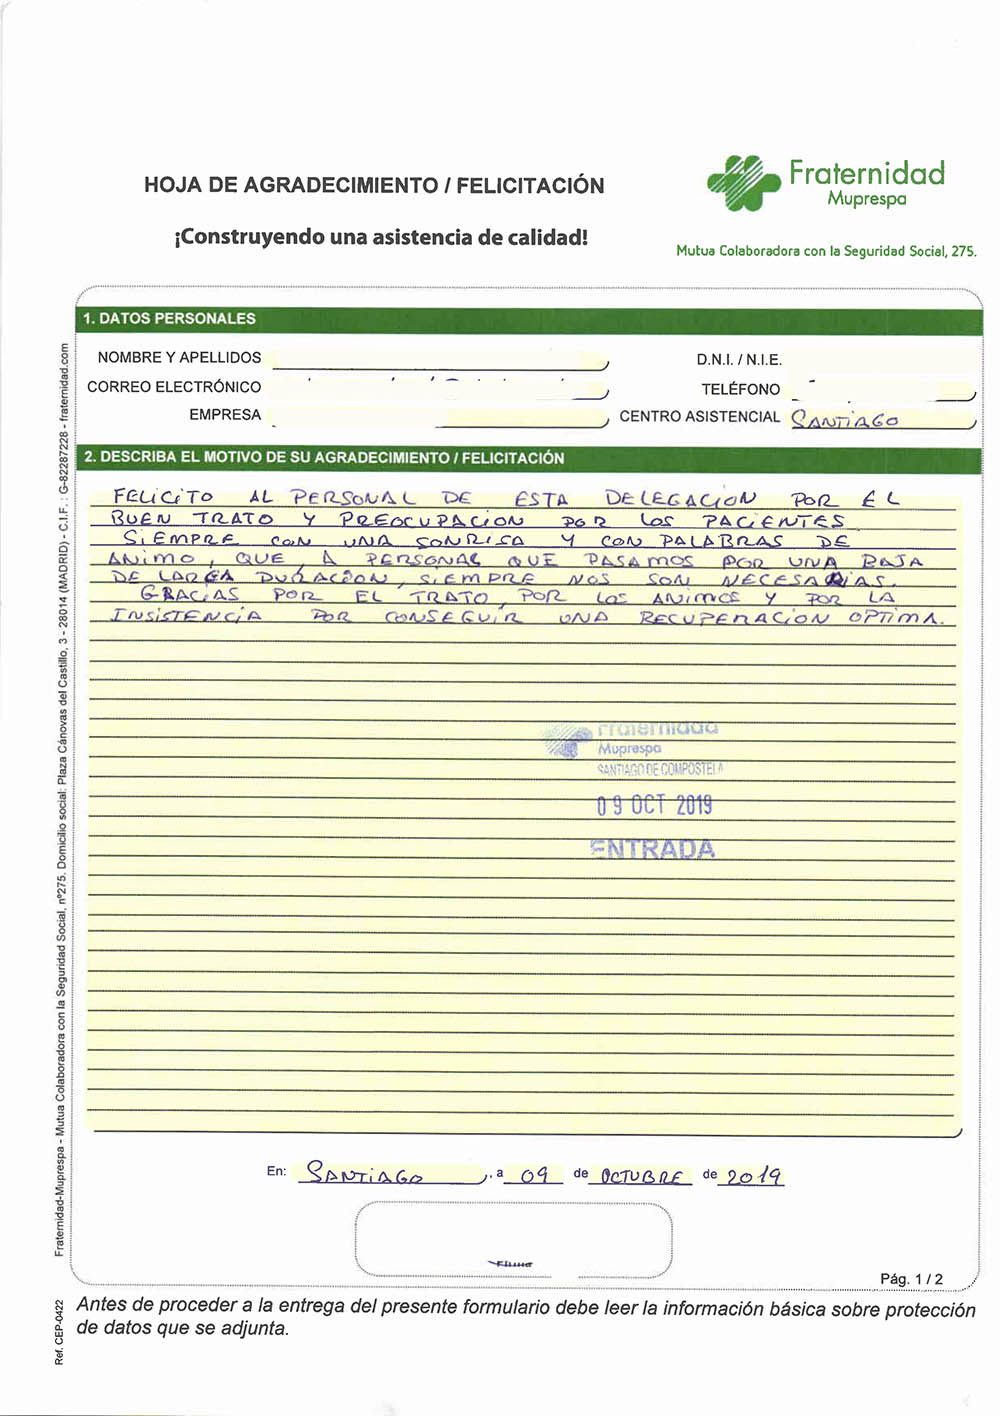 HOJA DE AGRADECIMIENTO / FELICITACIÓN
¡Construyendo una asistencia de calidad!
Fraternidad
Muprespa
Mutua Colaboradora con la Seguridad Social, 275.
1. DATOS PERSONALES
NOMBRE Y APELLIDOS
D.N.I. / N.I.E.
CORREO ELECTRÓNICO
TELÉFONO
EMPRESA
CENTRO ASISTENCIAL SANTIAGO
2. DESCRIBA EL MOTIVO DE SU AGRADECIMIENTO / FELICITACIÓN
FELICITO AL PERSONAL DE ESTA DELEGACION POR EL
BUEN TRATO Y PREOCUPACION POR LOS PACIENTES
SIEMPRE CON UNA SONRISA Y CON PALABRAS DE
ANIMO, QUE A PERSONAS QUE PASAMOS POR UNA BAJA
DE LARGA DURACION, SIEMPRE NOS SON NECESARIAS.
GRACIAS POR EL TRATO, POR LOS ANIMOS Y POR LA
INSISTENCIA POR CONSEGUIR UNA RECUPERACION OPTIMA.
Fraternidad
Muprespa
SANTIAGO DE COMPOSTELA
09 OCT 2019
ENTRADA
En: SANTIAGO, a 09 de OCTUBRE de 2019
Firma
Pág. 1 / 2
Antes de proceder a la entrega del presente formulario debe leer la información básica sobre protección
de datos que se adjunta.
Fraternidad-Muprespa - Mutua Colaboradora con la Seguridad Social, nº275. Domicilio social: Plaza Cánovas del Castillo, 3 - 28014 (MADRID) - C.I.F. : G-82287228 - fraternidad.com
Ref. CEP-0422